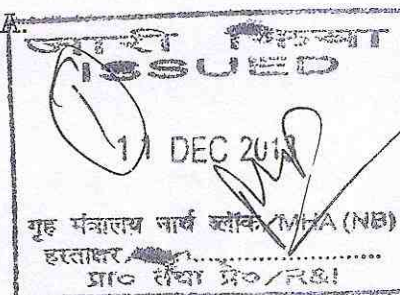 A.
जारी किया
ISSUED
11 DEC 201
गृह मंत्रालय नार्थ ब्लॉक/MHA (NB)
हस्ताक्षर
प्रा० तथा प्रे०/R&I